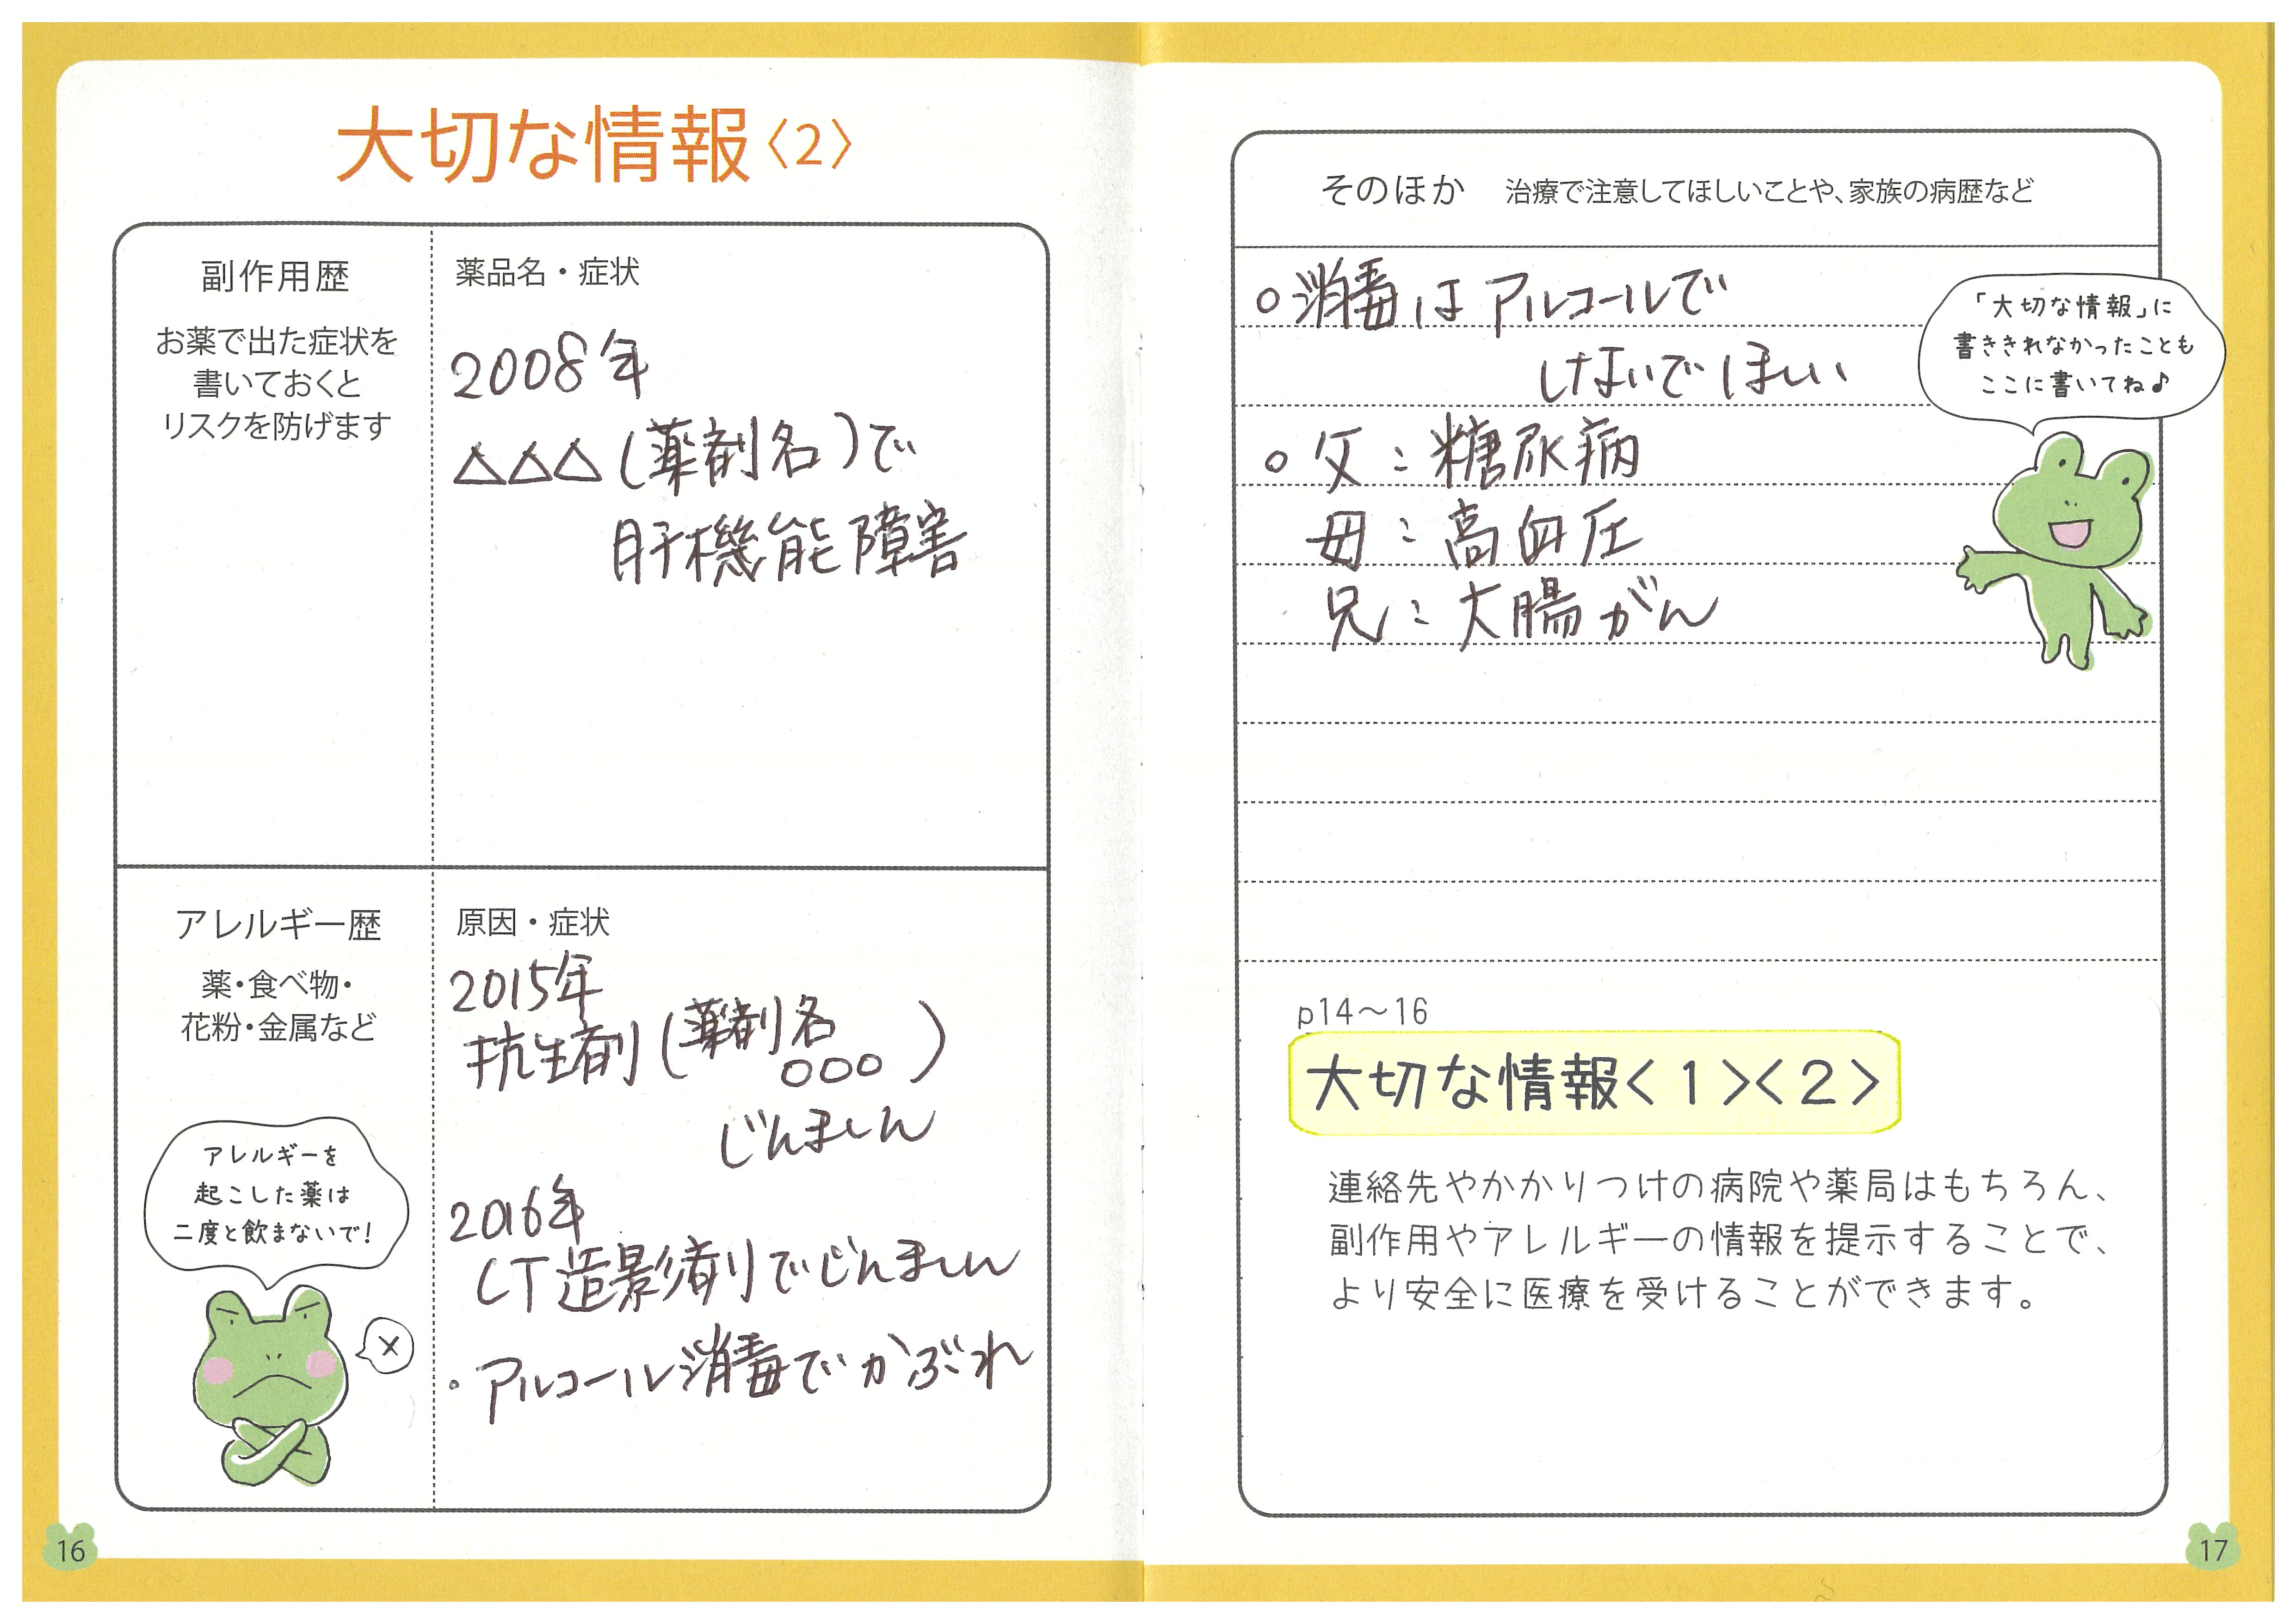 大切な情報〈2〉
副作用歴
お薬で出た症状を
書いておくと
リスクを防げます
薬品名・症状
2008年
△△△(薬剤名)で
肝機能障害
アレルギー歴
薬・食べ物・
花粉・金属など
アレルギーを
起こした薬は
二度と飲まないで!
×
原因・症状
2015年
抗生剤(薬剤名
○○○)
じんましん
2016年
CT造影剤でじんましん
・アルコール消毒でかぶれ
16
そのほか 治療で注意してほしいことや、家族の病歴など
○消毒はアルコールで
しないでほしい
○父:糖尿病
母:高血圧
兄:大腸がん
「大切な情報」に
書ききれなかったことも
ここに書いてね♪
p14～16
大切な情報<1><2>
連絡先やかかりつけの病院や薬局はもちろん、
副作用やアレルギーの情報を提示することで、
より安全に医療を受けることができます。
17